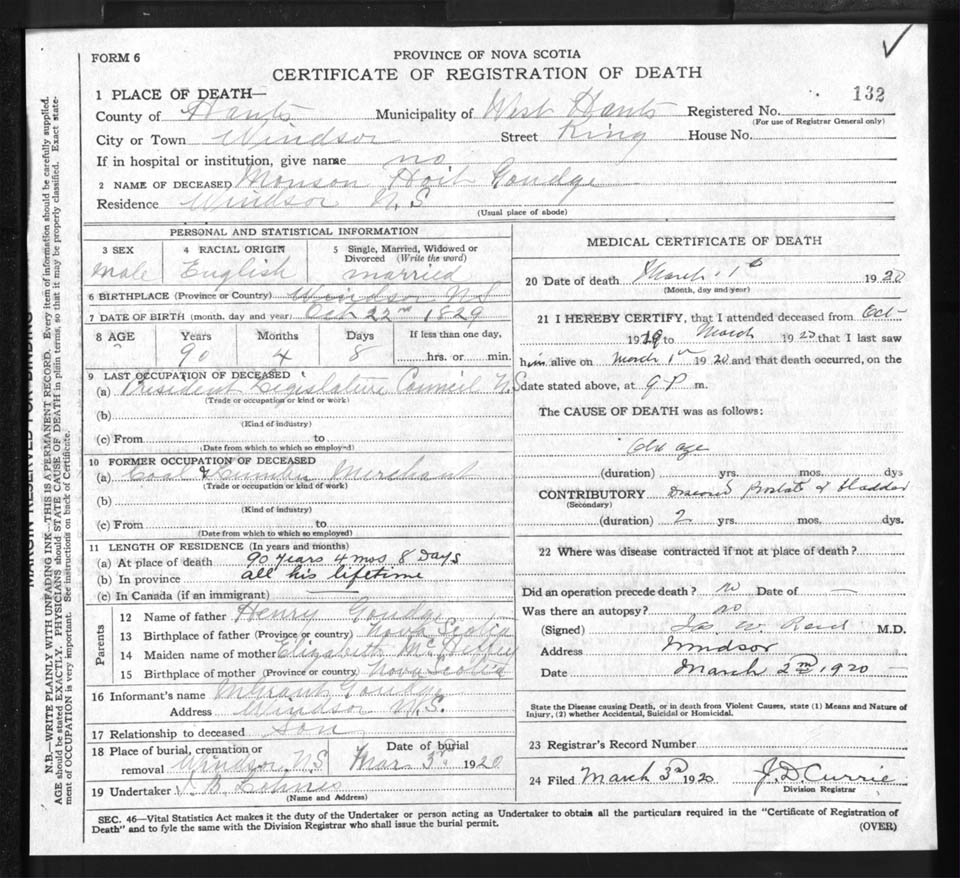 FORM 6
PROVINCE OF NOVA SCOTIA
CERTIFICATE OF REGISTRATION OF DEATH
1 PLACE OF DEATH—
132
County of Hants Municipality of West Hants Registered No.
(For use of Registrar General only)
City or Town Windsor Street King House No.
If in hospital or institution, give name no
2 NAME OF DECEASED Monson Hoit Goudge
Residence Windsor N S
(Usual place of abode)
PERSONAL AND STATISTICAL INFORMATION
3 SEX 4 RACIAL ORIGIN 5 Single, Married, Widowed or Divorced (Write the word)
male English married
6 BIRTHPLACE (Province or Country) Windsor N S
7 DATE OF BIRTH (month, day and year) Oct 22nd 1829
8 AGE Years Months Days If less than one day,
90 4 8 hrs. or min.
9 LAST OCCUPATION OF DECEASED
(a) President Legislature Council N.S
(Trade or occupation or kind or work)
(b)
(Kind of industry)
(c) From to
(Date from which to which so employed)
10 FORMER OCCUPATION OF DECEASED
(a) Coal & Lumber Merchant
(Trade or occupation or kind of work)
(b)
(Kind of industry)
(c) From to
(Date from which to which so employed)
11 LENGTH OF RESIDENCE (In years and months)
(a) At place of death 90 years 4 mos 8 Days
(b) In province all his lifetime
(c) In Canada (if an immigrant)
Parents
12 Name of father Henry Goudge
13 Birthplace of father (Province or country) Nova Scotia
14 Maiden name of mother Elizabeth
15 Birthplace of mother (Province or country) Nova Scotia
16 Informant's name Goudge
Address Windsor N.S.
17 Relationship to deceased Son
18 Place of burial, cremation or removal Windsor N.S Date of burial Mar. 3rd 1920
19 Undertaker
(Name and Address)
MEDICAL CERTIFICATE OF DEATH
20 Date of death March 1st 1920
(Month, day and year)
21 I HEREBY CERTIFY, that I attended deceased from Oct
1919 to March 1920 that I last saw
him alive on March 1st 1920 and that death occurred, on the
date stated above, at 9 P m.
The CAUSE OF DEATH was as follows:
Old age
(duration) yrs. mos. dys
CONTRIBUTORY Diseased Prostate & bladder
(Secondary)
(duration) 2 yrs. mos. dys.
22 Where was disease contracted if not at place of death?
Did an operation precede death? no Date of —
Was there an autopsy? no
(Signed) Jas. W. Reid M.D.
Address Windsor
Date March 2nd 1920
State the Disease causing Death, or in death from Violent Causes, state (1) Means and Nature of
Injury, (2) whether Accidental, Suicidal or Homicidal.
23 Registrar's Record Number
24 Filed March 3rd 1920 J.D. Currie
Division Registrar
SEC. 46—Vital Statistics Act makes it the duty of the Undertaker or person acting as Undertaker to obtain all the particulars required in the "Certificate of Registration of
Death" and to fyle the same with the Division Registrar who shall issue the burial permit.
(OVER)
MARGIN RESERVED FOR BINDING
N.B.—WRITE PLAINLY WITH UNFADING INK—THIS IS A PERMANENT RECORD. Every item of information should be carefully supplied.
AGE should be stated EXACTLY. PHYSICIANS should STATE CAUSE OF DEATH in plain terms, so that it may be properly classified. Exact state-
ment of OCCUPATION is very important. See instructions on back of Certificate.